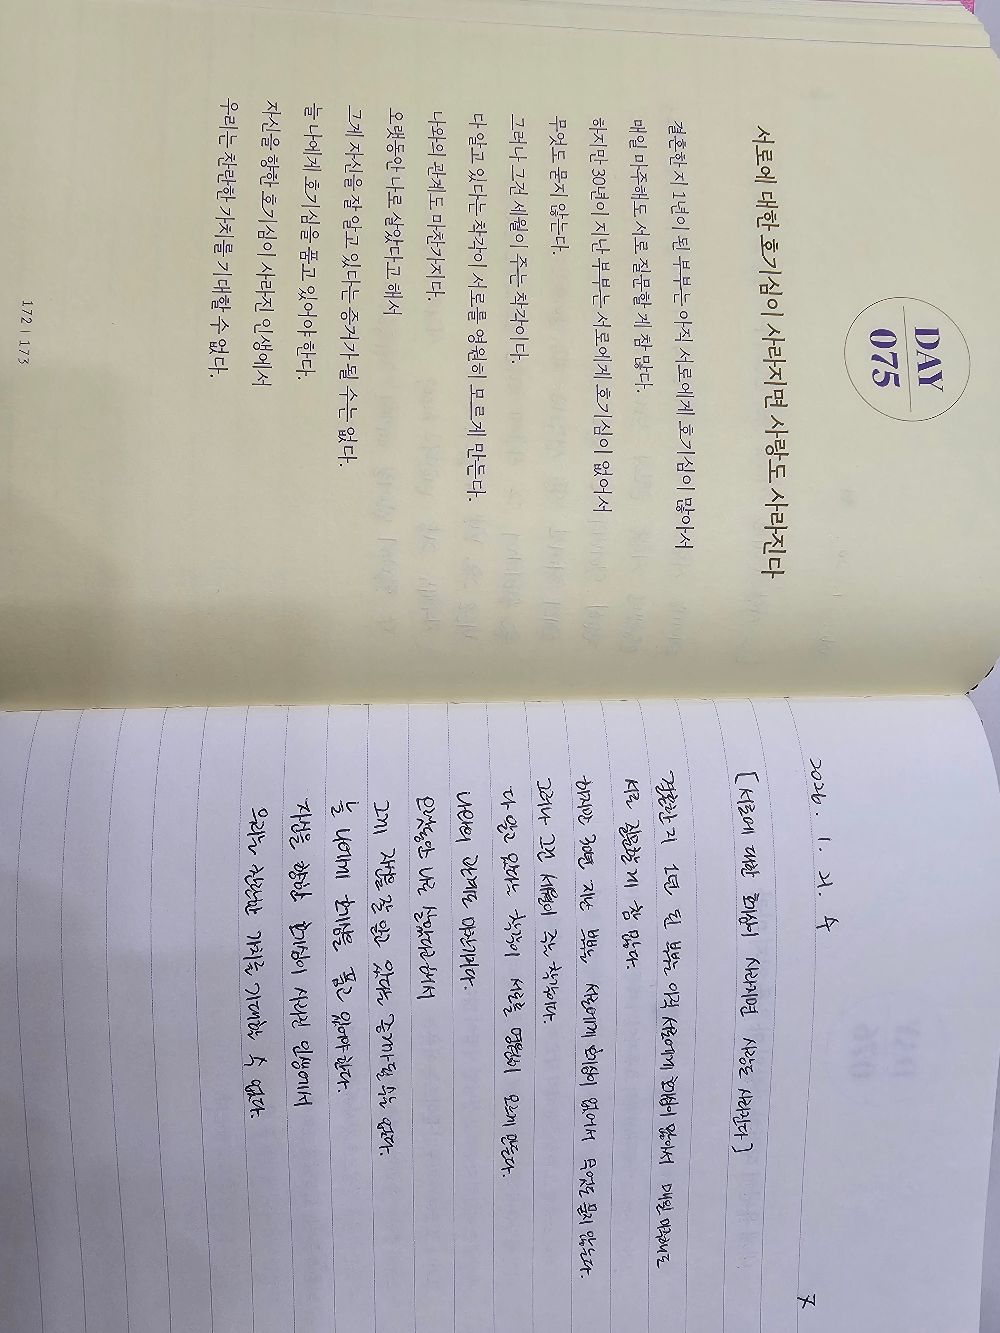 DAY
075
서로에 대한 호기심이 사라지면 사랑도 사라진다
결혼한 지 1년이 된 부부는 아직 서로에게 호기심이 많아서
매일 마주해도 서로 질문할 게 참 많다.
하지만 30년이 지난 부부는 서로에게 호기심이 없어서
무엇도 묻지 않는다.
그러나 그건 세월이 주는 착각이다.
다 알고 있다는 착각이 서로를 영원히 모르게 만든다.
나와의 관계도 마찬가지다.
오랫동안 나로 살았다고 해서
그게 자신을 잘 알고 있다는 증거가 될 수는 없다.
늘 나에게 호기심을 품고 있어야 한다.
자신을 향한 호기심이 사라진 인생에서
우리는 찬란한 가치를 기대할 수 없다.
172 | 173
2026. 1. 21. 수
[서로에 대한 호기심이 사라지면 사랑도 사라진다]
결혼한 지 1년 된 부부는 아직 서로에게 호기심이 많아서 매일 마주해도
서로 질문할 게 참 많다.
하지만 30년 지난 부부는 서로에게 호기심이 없어서 무엇도 묻지 않는다.
그러나 그건 세월이 주는 착각이다.
다 알고 있다는 착각이 서로를 영원히 모르게 만든다.
나와의 관계도 마찬가지다.
오랫동안 나로 살았다고 해서
그게 자신을 잘 알고 있다는 증거가 될 수는 없다.
늘 나에게 호기심을 품고 있어야 한다.
자신을 향한 호기심이 사라진 인생에서
우리는 찬란한 가치를 기대할 수 없다.